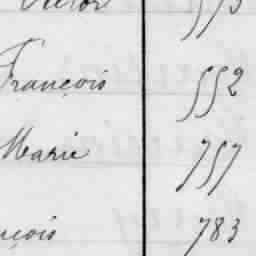 Victor 573
François 552
Marie 757
nçois 783